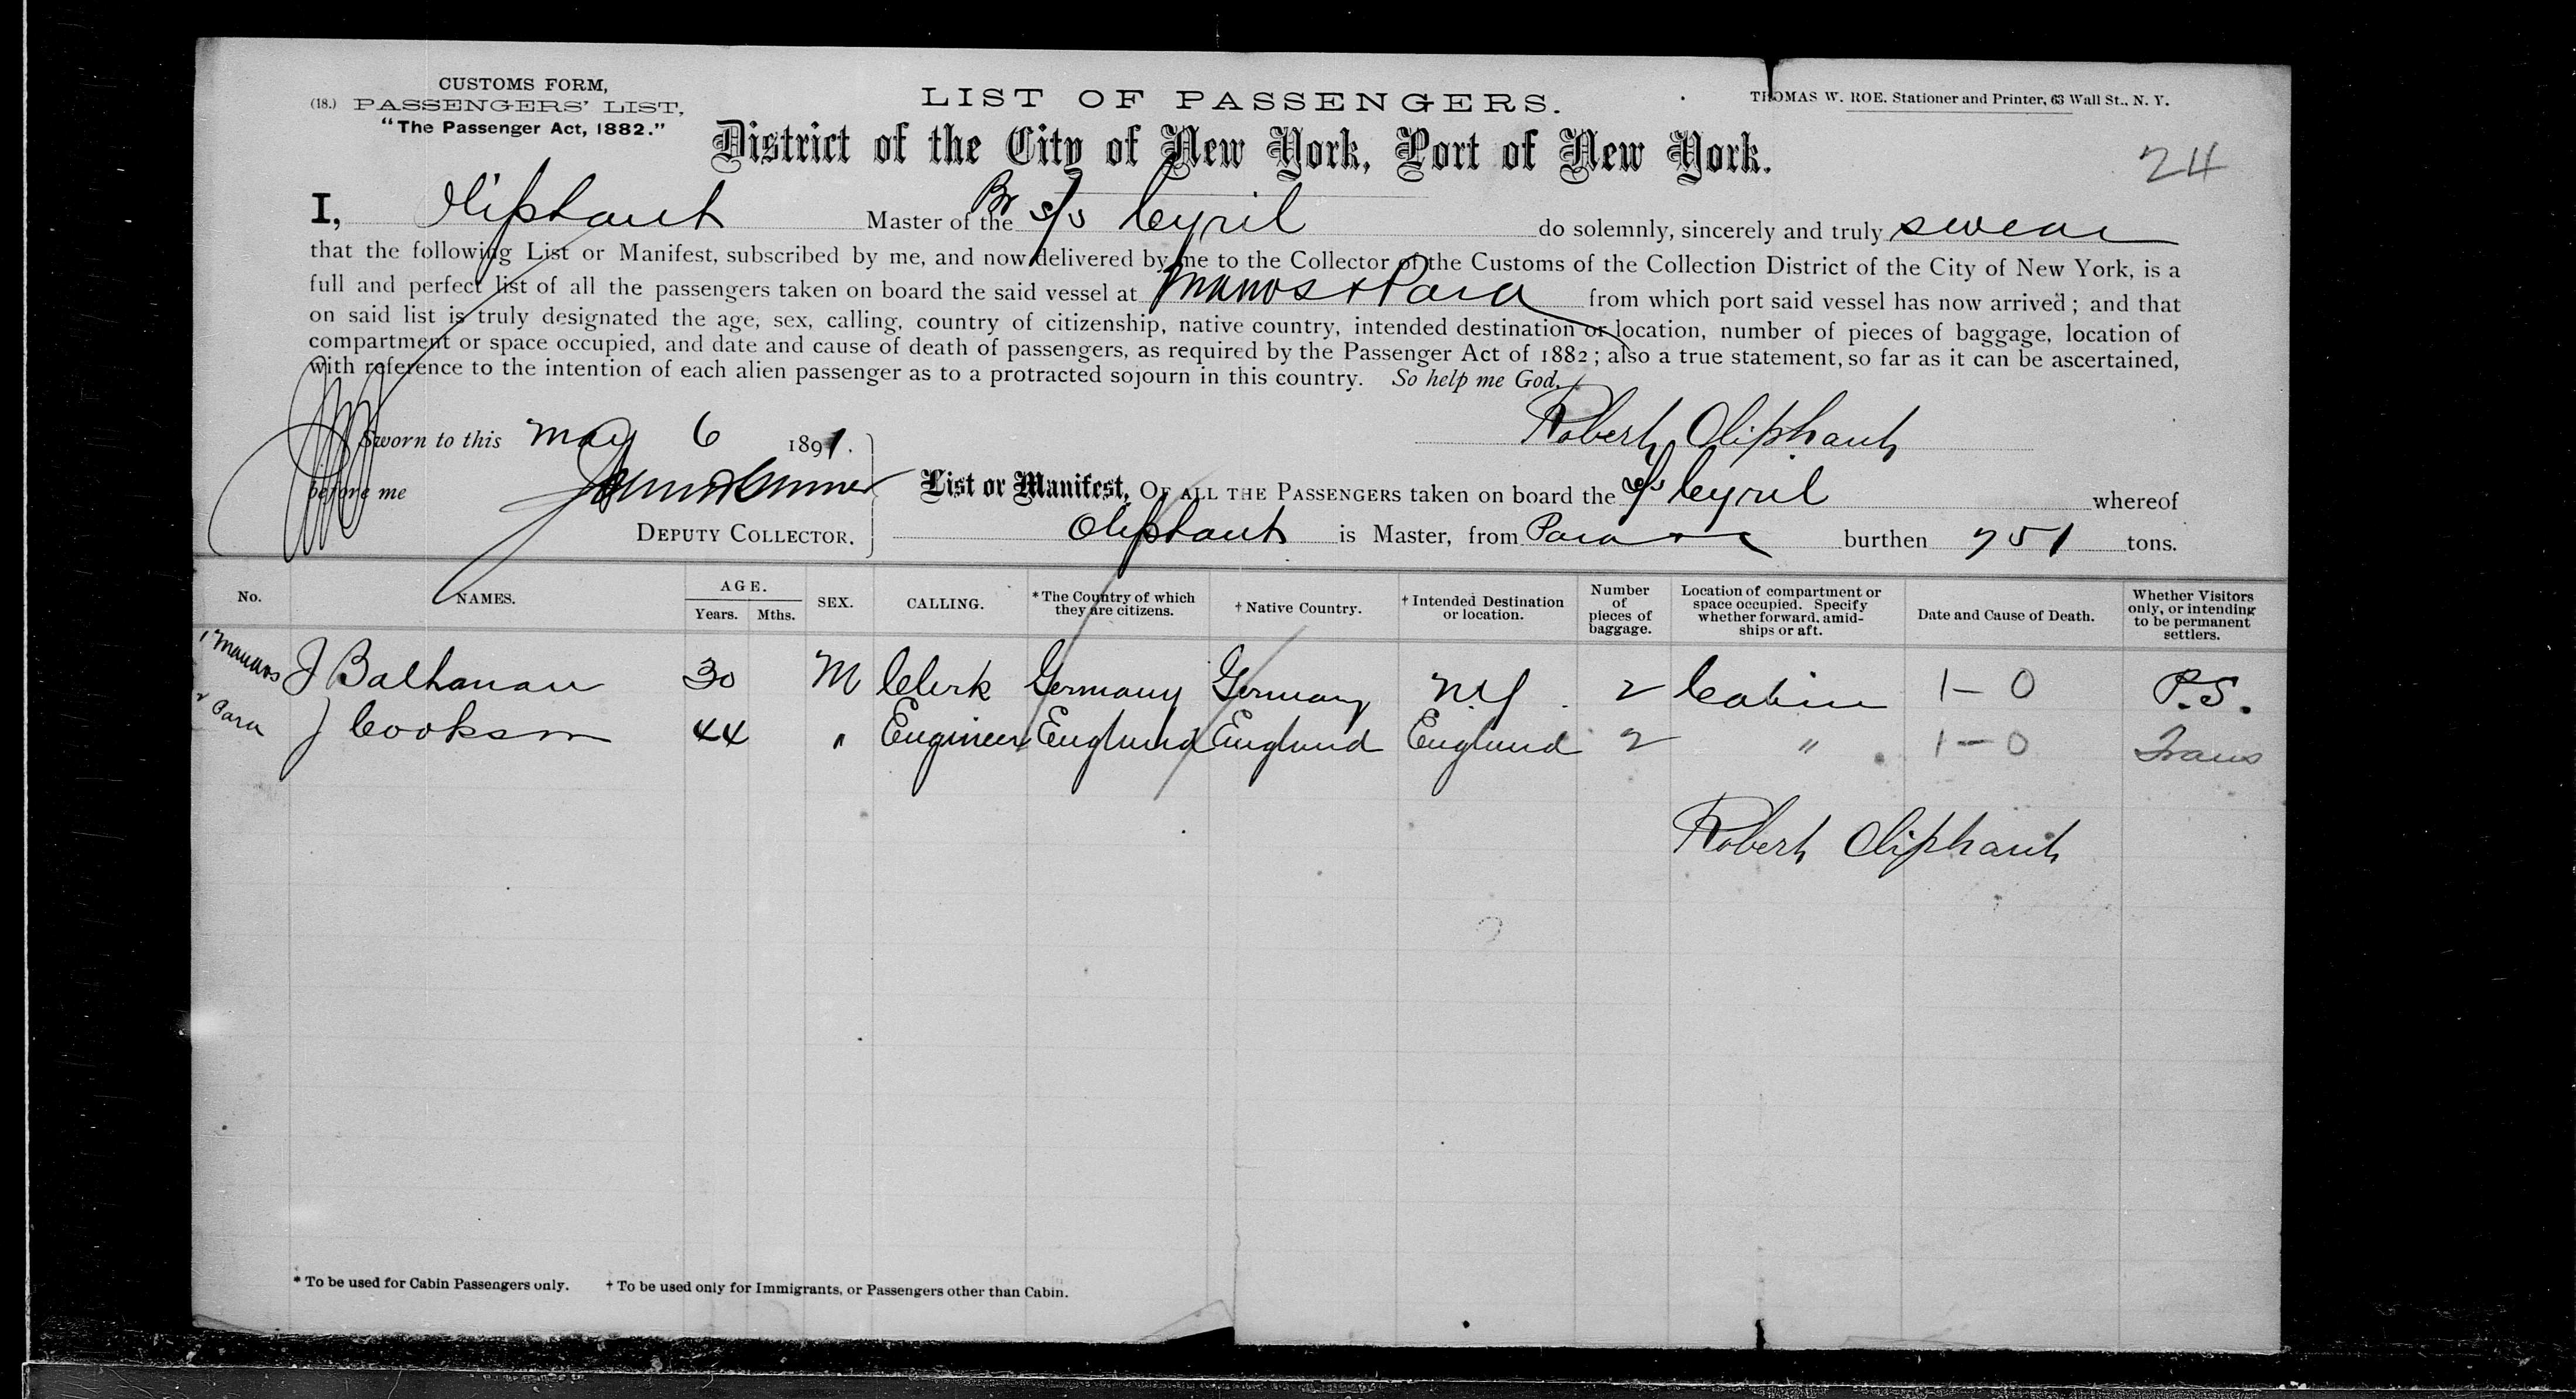 CUSTOMS FORM,
(18.) PASSENGERS' LIST,
"The Passenger Act, 1882."
LIST OF PASSENGERS.
THOMAS W. ROE. Stationer and Printer, 63 Wall St., N. Y.
District of the City of New York, Port of New York.
24
I, Oliphant Master of the Br s/s Cyril do solemnly, sincerely and truly swear
that the following List or Manifest, subscribed by me, and now delivered by me to the Collector of the Customs of the Collection District of the City of New York, is a
full and perfect list of all the passengers taken on board the said vessel at Manos & Para from which port said vessel has now arrived; and that
on said list is truly designated the age, sex, calling, country of citizenship, native country, intended destination or location, number of pieces of baggage, location of
compartment or space occupied, and date and cause of death of passengers, as required by the Passenger Act of 1882; also a true statement, so far as it can be ascertained,
with reference to the intention of each alien passenger as to a protracted sojourn in this country. So help me God.
Robert Oliphant
Sworn to this May 6 1891.
before me
DEPUTY COLLECTOR.
List or Manifest, OF ALL THE PASSENGERS taken on board the s/s Cyril whereof
Oliphant is Master, from Para burthen 751 tons.
No. NAMES. AGE. Years. Mths. SEX. CALLING. *The Country of which they are citizens. †Native Country. †Intended Destination or location. Number of pieces of baggage. Location of compartment or space occupied. Specify whether forward, amidships or aft. Date and Cause of Death. Whether Visitors only, or intending to be permanent settlers.
1 Manaos J 30 M Clerk Germany Germany N.Y. 2 Cabin 1-0 P.S.
2 Para J Cookson 44 " Engineer England England England 2 " 1-0 Trans
Robert Oliphant
* To be used for Cabin Passengers only. † To be used only for Immigrants, or Passengers other than Cabin.